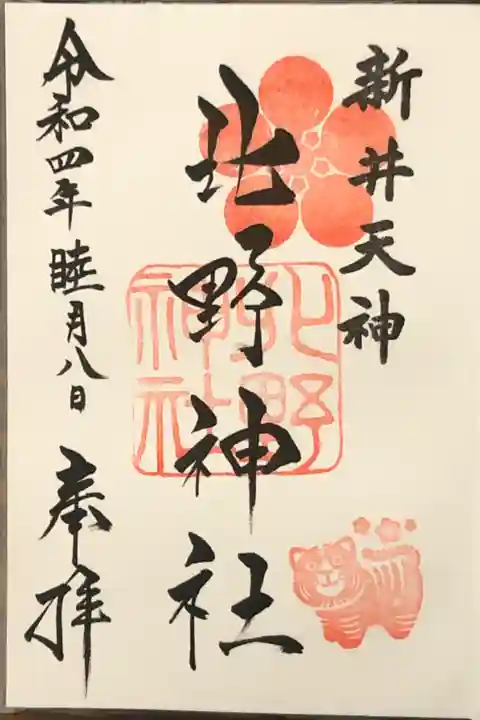 新井天神
北野神社
北野
神社
令和四年睦月八日
奉拝